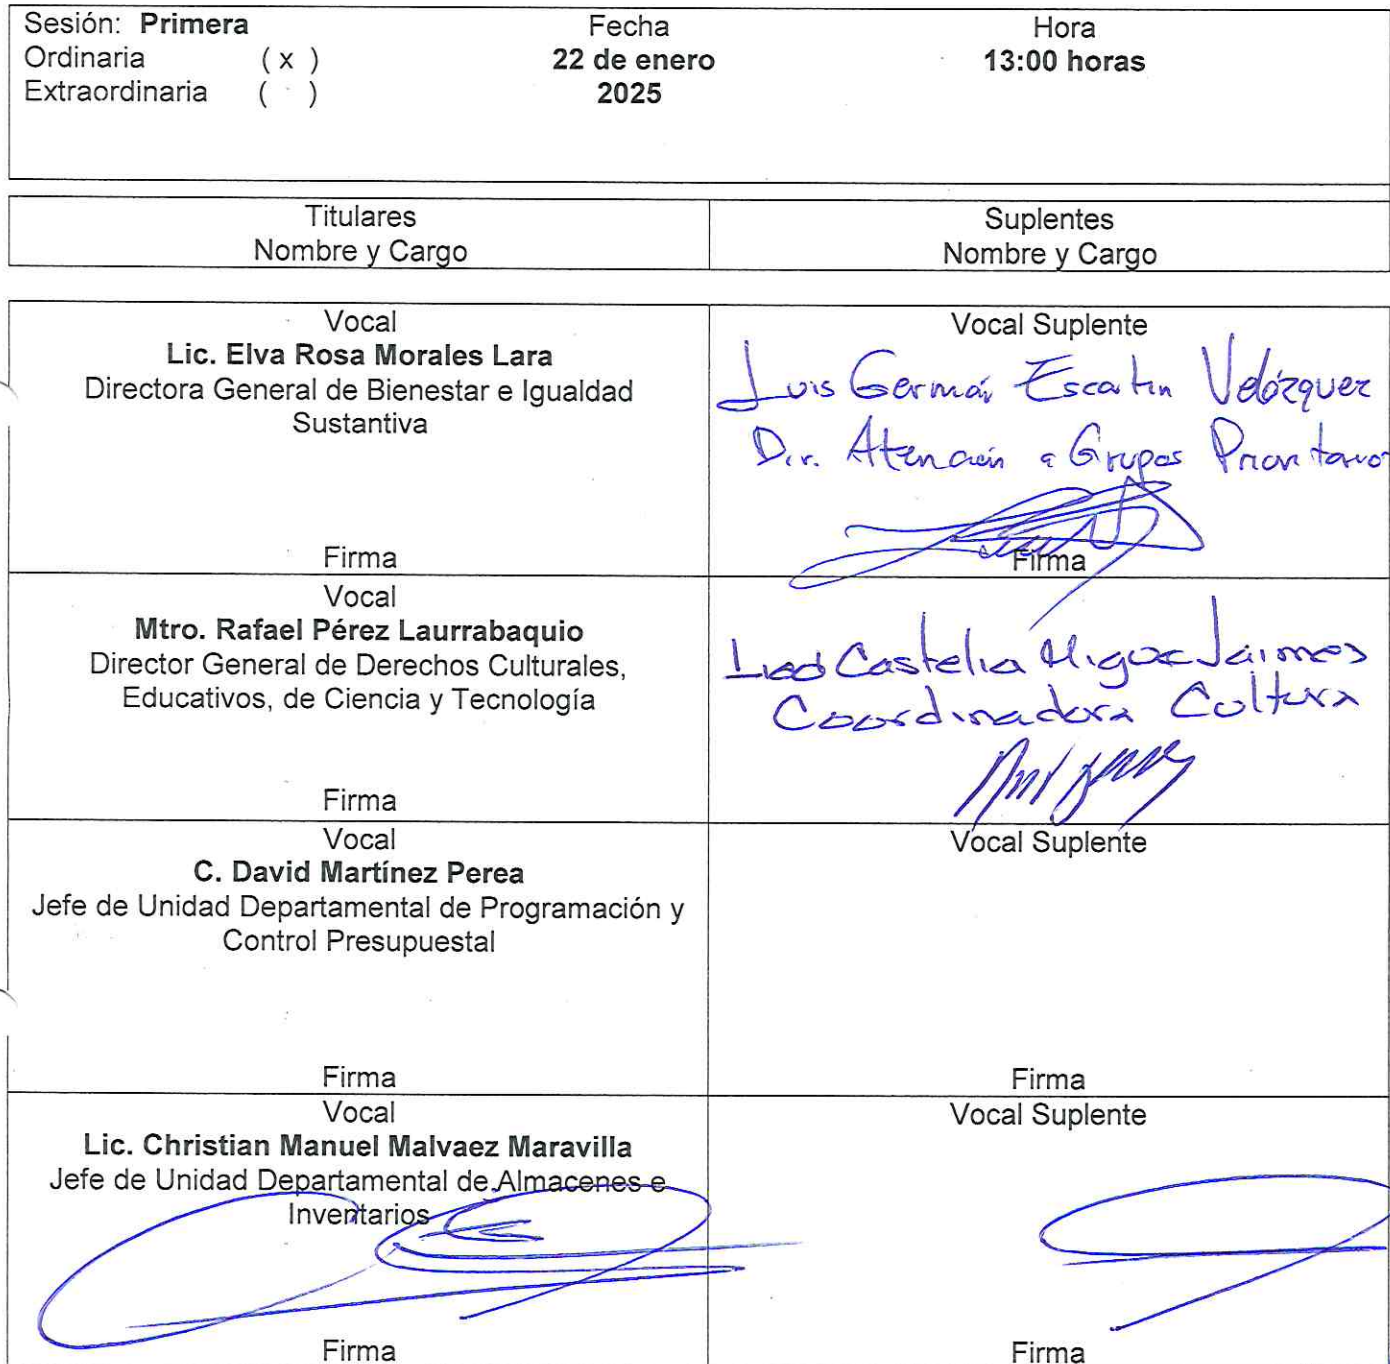 Sesión: Primera
Ordinaria ( x )
Extraordinaria ( )
Fecha
22 de enero
2025
Hora
13:00 horas
Titulares
Nombre y Cargo
Suplentes
Nombre y Cargo
Vocal
Lic. Elva Rosa Morales Lara
Directora General de Bienestar e Igualdad
Sustantiva
Firma
Vocal Suplente
Luis Germán Escatin Velázquez
Dir. Atención a Grupos Prioritarios
Firma
Vocal
Mtro. Rafael Pérez Laurrabaquio
Director General de Derechos Culturales,
Educativos, de Ciencia y Tecnología
Firma
Castelia Jaimes
Coordinadora Cultura
Vocal
C. David Martínez Perea
Jefe de Unidad Departamental de Programación y
Control Presupuestal
Firma
Vocal Suplente
Firma
Vocal
Lic. Christian Manuel Malvaez Maravilla
Jefe de Unidad Departamental de Almacenes e
Inventarios
Firma
Vocal Suplente
Firma